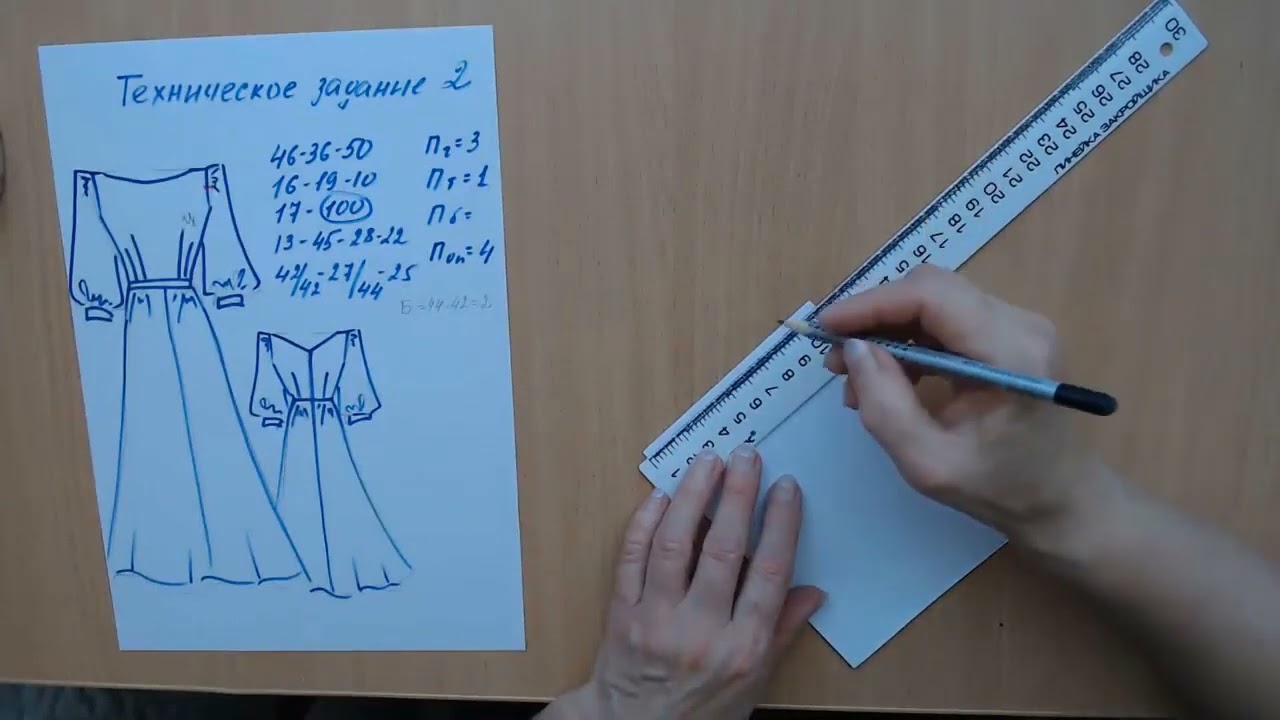 Техническое задание 2
46-36-50
16-19-10
17-100
13-45-28-22
42/42-27/44-25
Пг=3
Пт=1
Пб=
Поп=4
Б=44-42=2
1 2 3 4 5 6 7 8 9 10 15 16 17 18 19 20 21 22 23 24 25 26 27 28 30
ЛИНЕЙКА ЗАКРОЙЩИКА